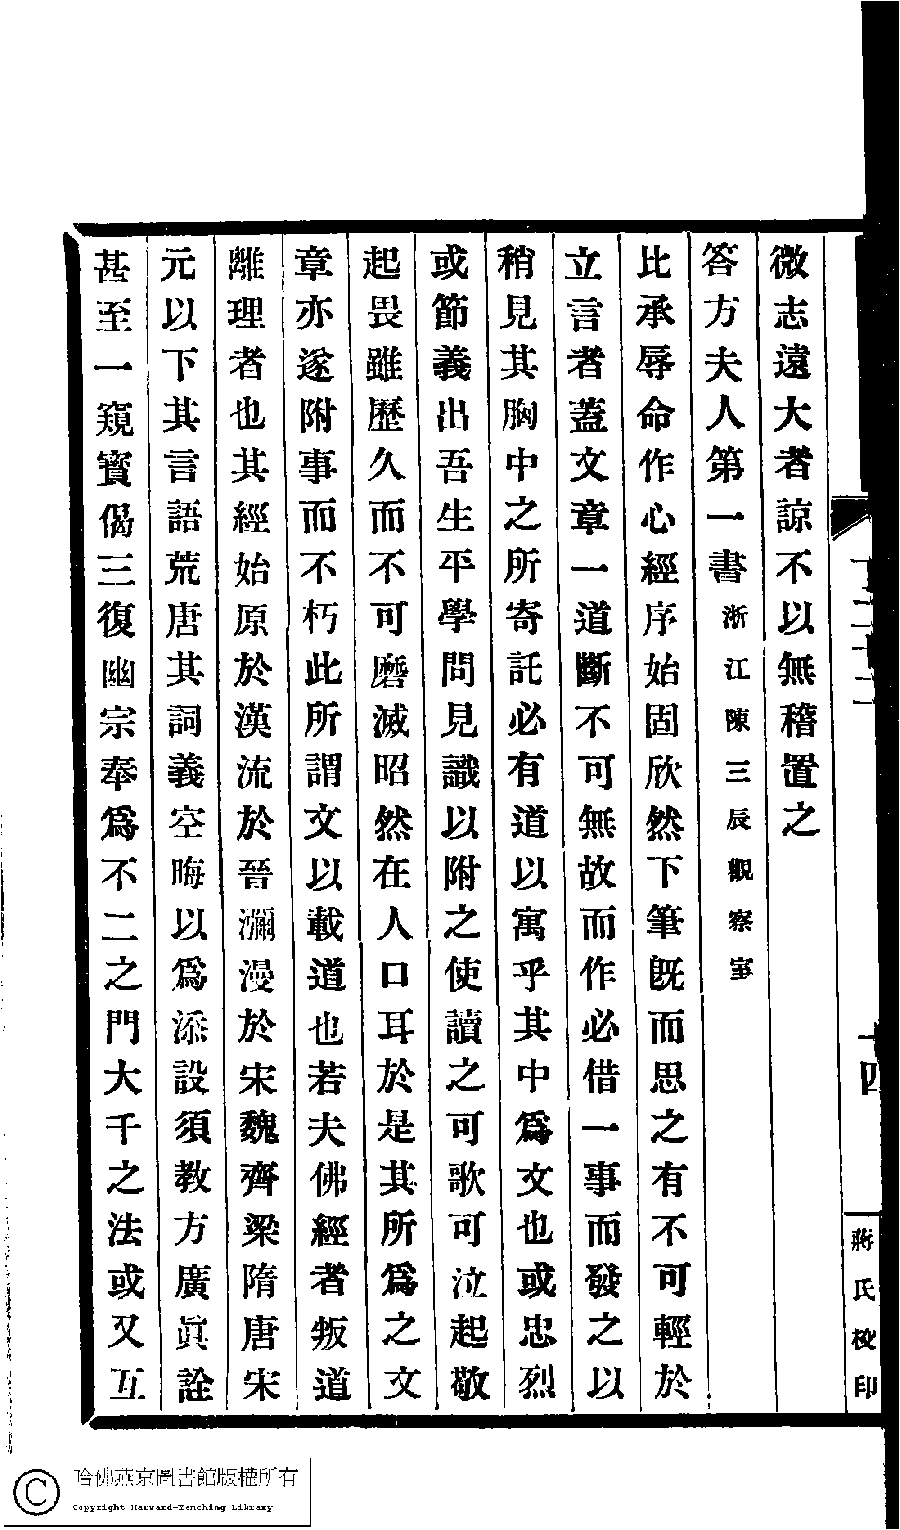 微志遠大者諒不以無稽置之
答方夫人第一書浙江陳三辰觀察室
比承辱命作心經序始固欣然下筆旣而思之有不可輕於
立言者蓋文章一道斷不可無故而作必借一事而發之以
稍見其胸中之所寄託必有道以寓乎其中爲文也或忠烈
或節義出吾生平學問見識以附之使讀之可歌可泣起敬
起畏雖歷久而不可磨滅昭然在人口耳於是其所爲之文
章亦遂附事而不朽此所謂文以載道也若夫佛經者叛道
離理者也其經始原於漢流於晉瀰漫於宋魏齊梁隋唐宋
元以下其言語荒唐其詞義空晦以爲添設須教方廣眞詮
甚至一窺寳偈三復幽宗奉爲不二之門大千之法或又互
十四
蔣氏校印
哈佛燕京圖書館版權所有
Copyright Harvard-Yenching Library